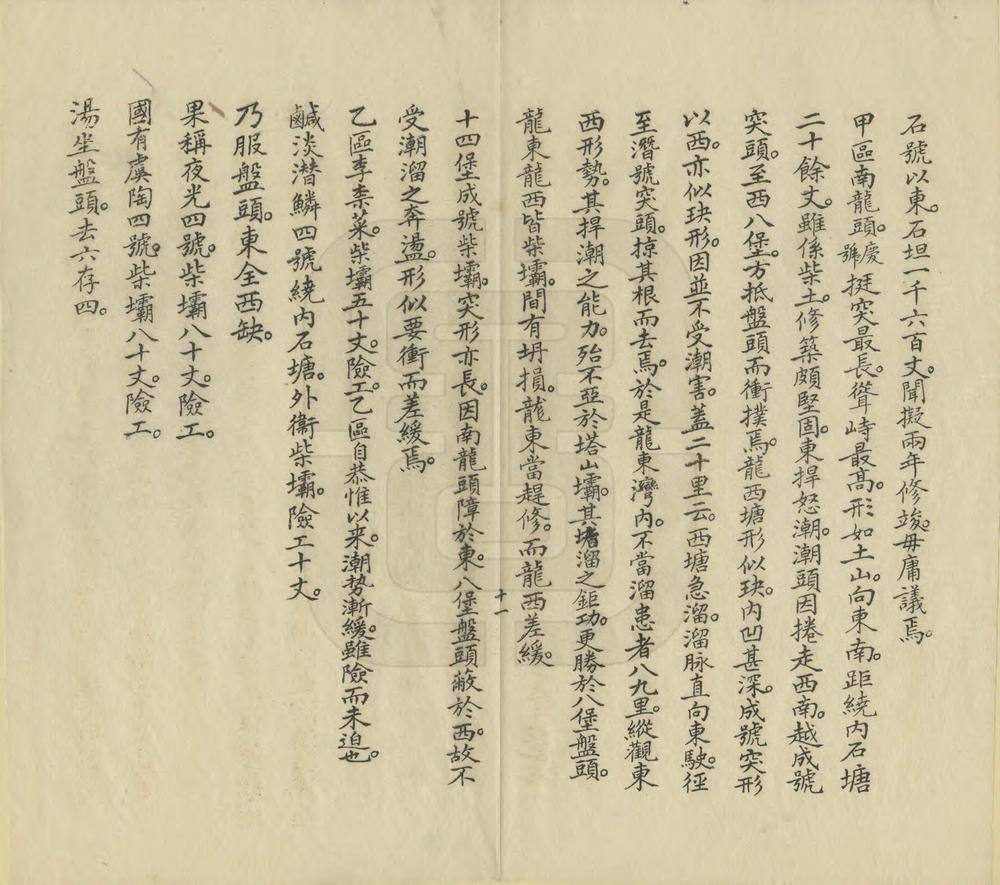 石號以東。石坦一千六百丈。聞擬兩年修竣。毋庸議焉。
甲區南龍頭。慶號挺突最長。聳峙最高。形如土山。向東南。距繞內石塘
二十餘丈。雖係柴土。修築頗堅固。東捍怒潮。潮頭因捲走西南。越成號
突頭。至西八堡。方抵盤頭而衝撲焉。龍西塘形似玦。內凹甚深。成號突形
以西。亦似玦形。因並不受潮害。蓋二十里云。西塘急溜。溜脉直向東駛。徑
至潛號突頭。掠其根而去焉。於是龍東灣內。不當溜患者八九里。縱觀東
西形勢。其捍潮之能力。殆不亞於塔山壩。其堵溜之鉅功。更勝於八堡盤頭。
龍東龍西皆柴壩。間有坍損。龍東當趕修。而龍西差緩。
十一
十四堡成號柴壩。突形亦長。因南龍頭障於東。八堡盤頭蔽於西。故不
受潮溜之奔盪。形似要衝而差緩焉。
乙區李柰菜。柴壩五十丈。險工。乙區自恭惟以来。潮势漸緩。雖險而未迫也。
鹹淡潛鱗四號繞內石塘。外衞柴壩。險工十丈。
乃服盤頭。東全西缺。
果稱夜光四號。柴壩八十丈。險工。
國有虞陶四號。柴壩八十丈。險工。
湯坐盤頭。去六存四。